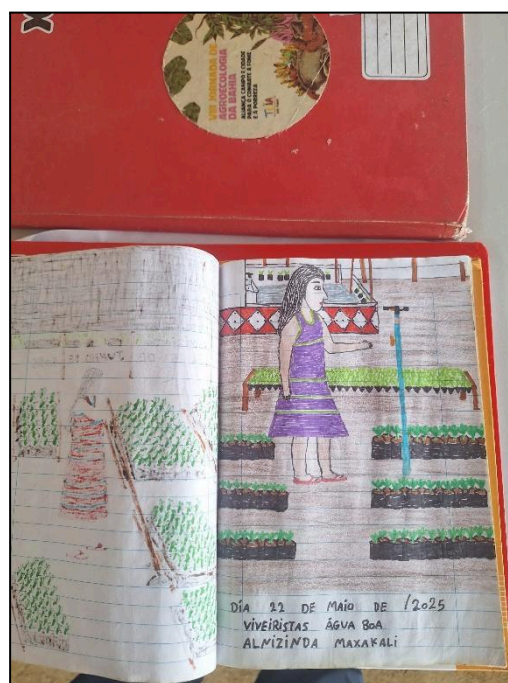 X
VIII JORNADA DE
AGROECOLOGIA
DA BAHIA
ALIANÇA CAMPO E CIDADE
PARA O COMBATE À FOME
E À POBREZA
DIA 22 DE MAIO DE /2025
VIVEIRISTAS ÁGUA BOA
ALNIZINDA MAXAKALI